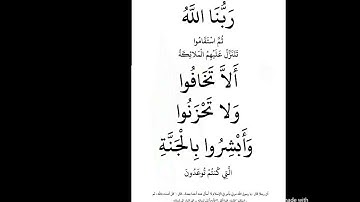 رَبُّنَا اللَّهُ
ثُمَّ اسْتَقَامُوا
تَتَنَزَّلُ عَلَيْهِمُ الْمَلَائِكَةُ
أَلاَّ تَخَافُوا
وَلا تَحْزَنُوا
وَأَبْشِرُوا بِالْجَنَّةِ
الَّتِي كُنتُمْ تُوعَدُونَ
made with